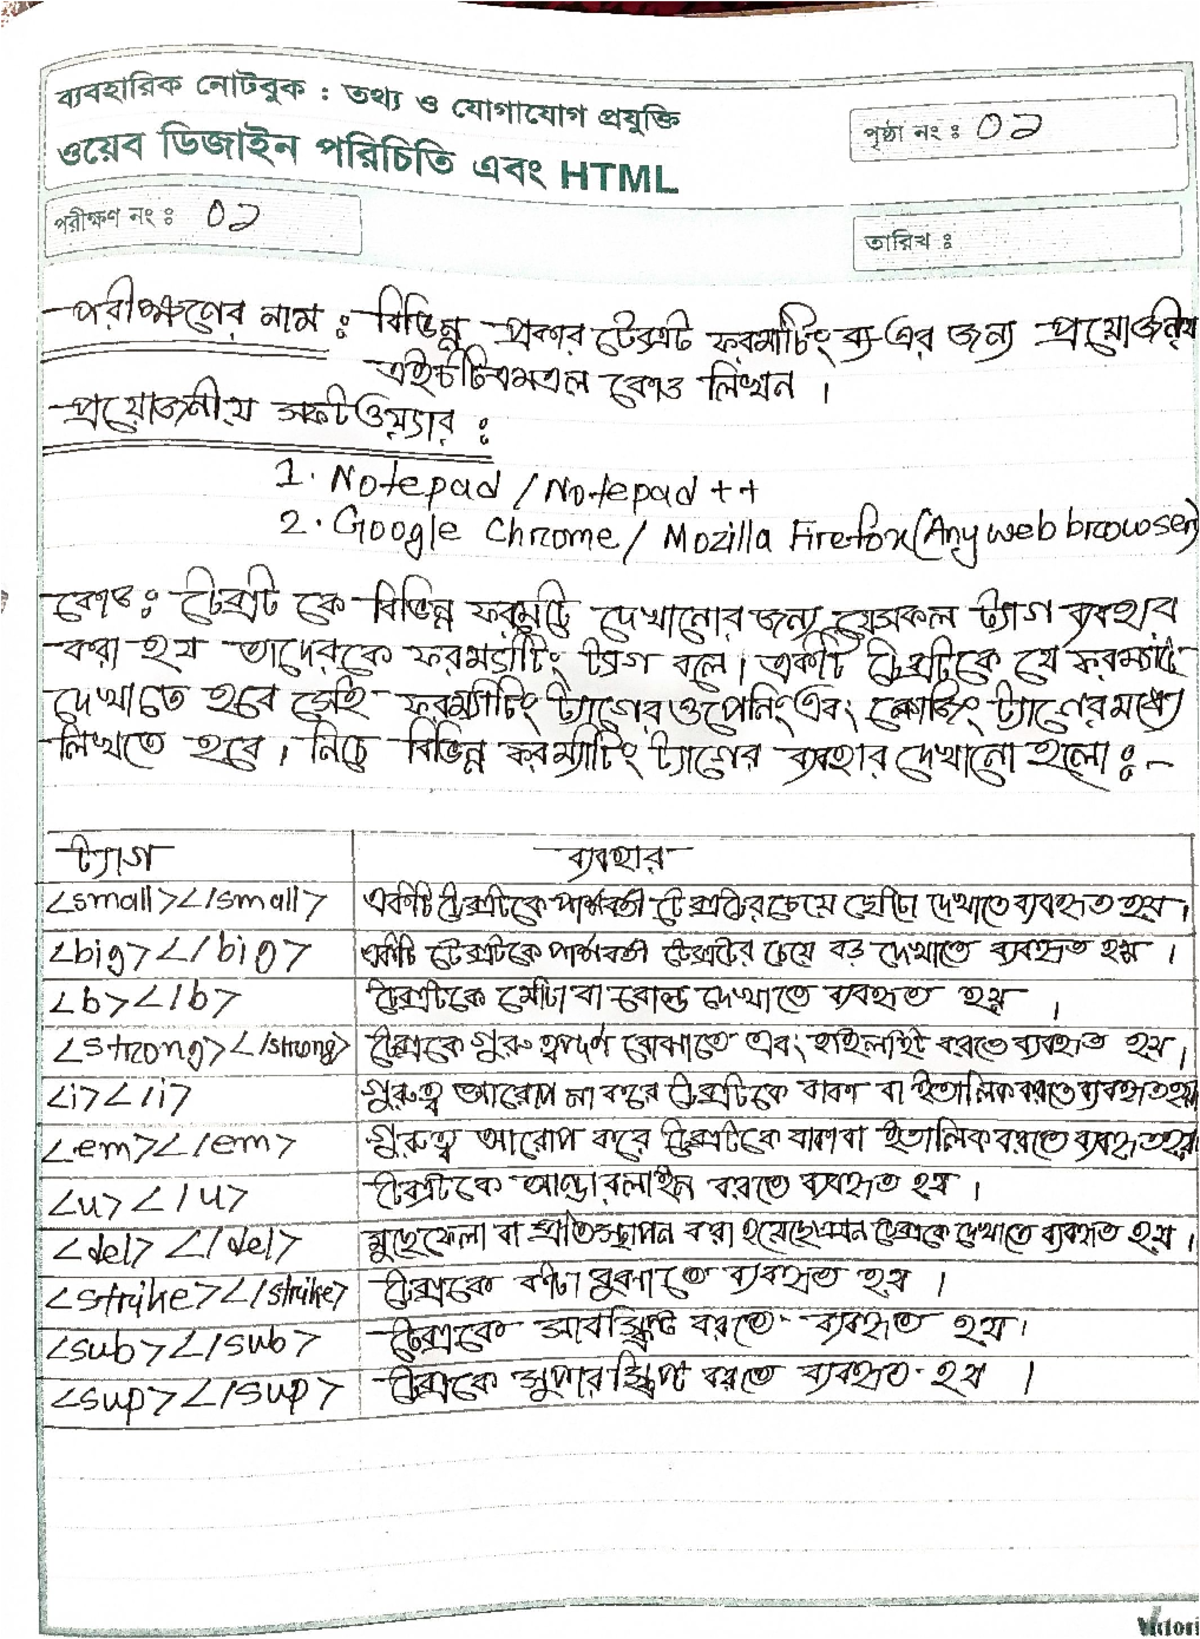 ব্যবহারিক নোটবুক : তথ্য ও যোগাযোগ প্রযুক্তি
ওয়েব ডিজাইন পরিচিতি এবং HTML
পৃষ্ঠা নং ঃ ০১
পরীক্ষণ নং ঃ ০১
তারিখ ঃ
পরীক্ষণের নাম : বিভিন্ন প্রকার টেক্সট ফরমাটিং ব্য এর জন্য প্রয়োজনীয়
এইচটিএমএল কোড লিখন ।
প্রয়োজনীয় সফটওয়্যার :
1. Notepad / Notepad ++
2. Google Chrome / Mozilla Firefox (Any web browser)
কোড : টেক্সট কে বিভিন্ন ফরমেটে দেখানোর জন্য যেসকল ট্যাগ ব্যবহার
করা হয় তাদেরকে ফরম্যাটিং ট্যাগ বলে। একটি টেক্সটকে যে ফরম্যাটে
দেখাতে হবে সেই ফরম্যাটিং ট্যাগের ওপেনিং এবং ক্লোজিং ট্যাগের মধ্যে
লিখতে হবে। নিচে বিভিন্ন ফরম্যাটিং ট্যাগের ব্যবহার দেখানো হলো :-
ট্যাগ ব্যবহার
<small></small> একটি টেক্সটকে পার্শ্ববর্তী টেক্সটের চেয়ে ছোটো দেখাতে ব্যবহৃত হয়।
<big></big> একটি টেক্সটকে পার্শ্ববর্তী টেক্সটের চেয়ে বড় দেখাতে ব্যবহৃত হয় ।
<b></b> টেক্সটকে মোটা বা বোল্ড দেখাতে ব্যবহৃত হয় ।
<strong></strong> টেক্সকে গুরুত্বপূর্ণ বোঝাতে এবং হাইলাইট করতে ব্যবহৃত হয়।
<i></i> গুরুত্ব আরোপ না করে টেক্সটকে বাঁকা বা ইতালিক করতে ব্যবহৃত হয়
<em></em> গুরুত্ব আরোপ করে টেক্সটকে বাঁকা বা ইতালিক করতে ব্যবহৃত হয়
<u></u> টেক্সটকে আন্ডারলাইন করতে ব্যবহৃত হয় ।
<del></del> মুছে ফেলা বা প্রতিস্থাপন করা হয়েছে এমন টেক্সকে দেখাতে ব্যবহৃত হয় ।
<strike></strike> টেক্সকে কাটা বুঝাতে ব্যবহৃত হয় ।
<sub></sub> টেক্সকে সাবস্ক্রিপ্ট করতে ব্যবহৃত হয়।
<sup></sup> টেক্সকে সুপারস্ক্রিপ্ট করতে ব্যবহৃত হয় ।